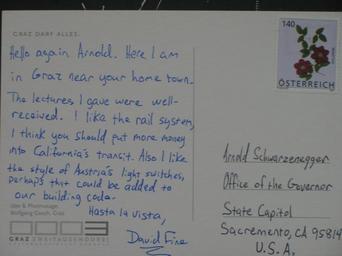 GRAZ DARF ALLES.
Hello again Arnold. Here I am
in Graz near your home town.
The lectures I gave were well-
received. I like the rail system,
I think you should put more money
into California's transit. Also I like
the style of Austria's light switches,
perhaps that could be added to
our building code.
Hasta la vista,
David Fine
Idee & Photomontage:
GRAZ ZWEITAUSENDDREI
140
ÖSTERREICH
Arnold Schwarzenegger
Office of the Governor
State Capitol
Sacramento, CA 95814
U.S.A.